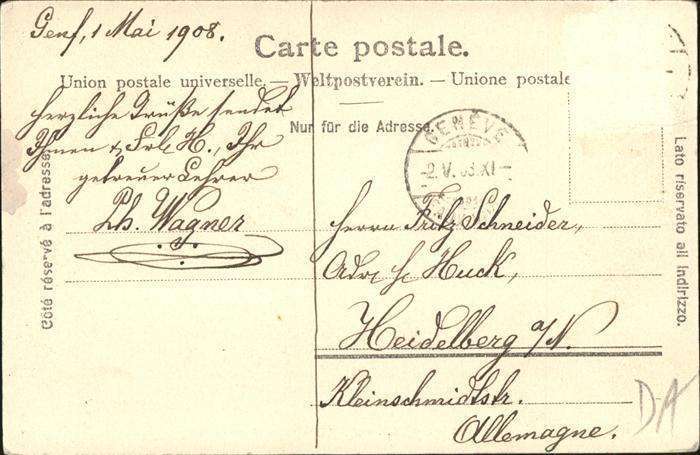 Genf, 1 Mai 1908.
Carte postale.
Union postale universelle. — Weltpostverein. — Unione postale
Nur für die Adresse.
herzliche Grüße sendet
Ihnen & Frl. H., Ihr
getreuer Lehrer
Ph. Wagner
Côté réservé à l'adresse.
GENÈVE
2.V.08.XI
Herrn Fritz Schneider,
Adr. H. Huck,
Heidelberg a/N.
Kleinschmidtstr.
Allemagne.
Lato riservato all indirizzo.
DA